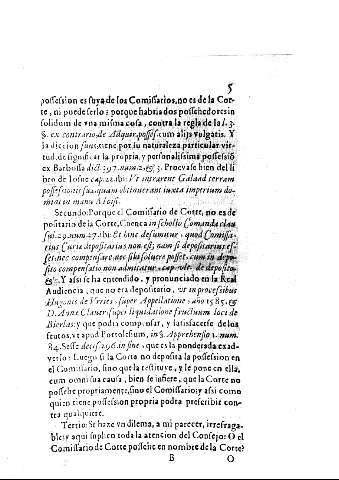 5
possession es suya de los Comissarios, no es de la Cor-
te, ni puede serlo: porque habria dos possehedores in
solidum de vna misma cosa, contra la regla de la l. 3.
§. ex contrario de Adquir. posses. cum alijs vulgatis. Y
la diccion suus, tiene por su naturaleza particular vir-
tud, de significar la propria, y personalissima possessiõ
ex Barbosa dict. 297. num. 2, & 3. Procvase bien del li
bro de Iosue cap. 22. ibi: Vt intrarent Galaad terram
possessionis suæ, quam obtinuerant iuxta imperium do-
mini in manu Moisi.
Secundo: Porque el Comissario de Corte, no es de
positario de la Corte, Cuenca in scholio Comanda clau
sul. 29. num. 27. ibi: Et sinè desumitur, quod Comissa-
rius Curiæ depositarius non est; nam si depositarius es-
set, nec compensare, nec posset, cum in depo-
sito compensatio non admitatur, cap. vlt. de deposito,
&c. Y assi se ha entendido, y pronunciado en la Real
Audiencia, que no era depositario, vt in processibus
Hugonis de Vrries, super Appellatione, año 1585. &
D. Annæ Clauer, super liquidatione fructuum loci de
Bierlas: y que podia compensar, y satisfacerse de los
frutos, vt apud Portolesum, in §. Apprehensio 1. num.
84. Sesse decis. 296. in fine, que es la ponderada ex ad-
verso: Luego si la Corte no deposita la possession en
el Comissario, sino que la restituye, y le pone en ella,
cum omni sua causa, bien se infiere, que la Corte no
possehe propriamente, sino el Comissario; y assi como
quien tiene possession propria podra prescribir con-
tra qualquiere.
Tertio: Se haze vn dilema, a mi parecer, irrefraga-
ble; y aqui suplico toda la atencion del Consejo: O el
Comissario de Corte possehe en nombre de la Corte?
B
O